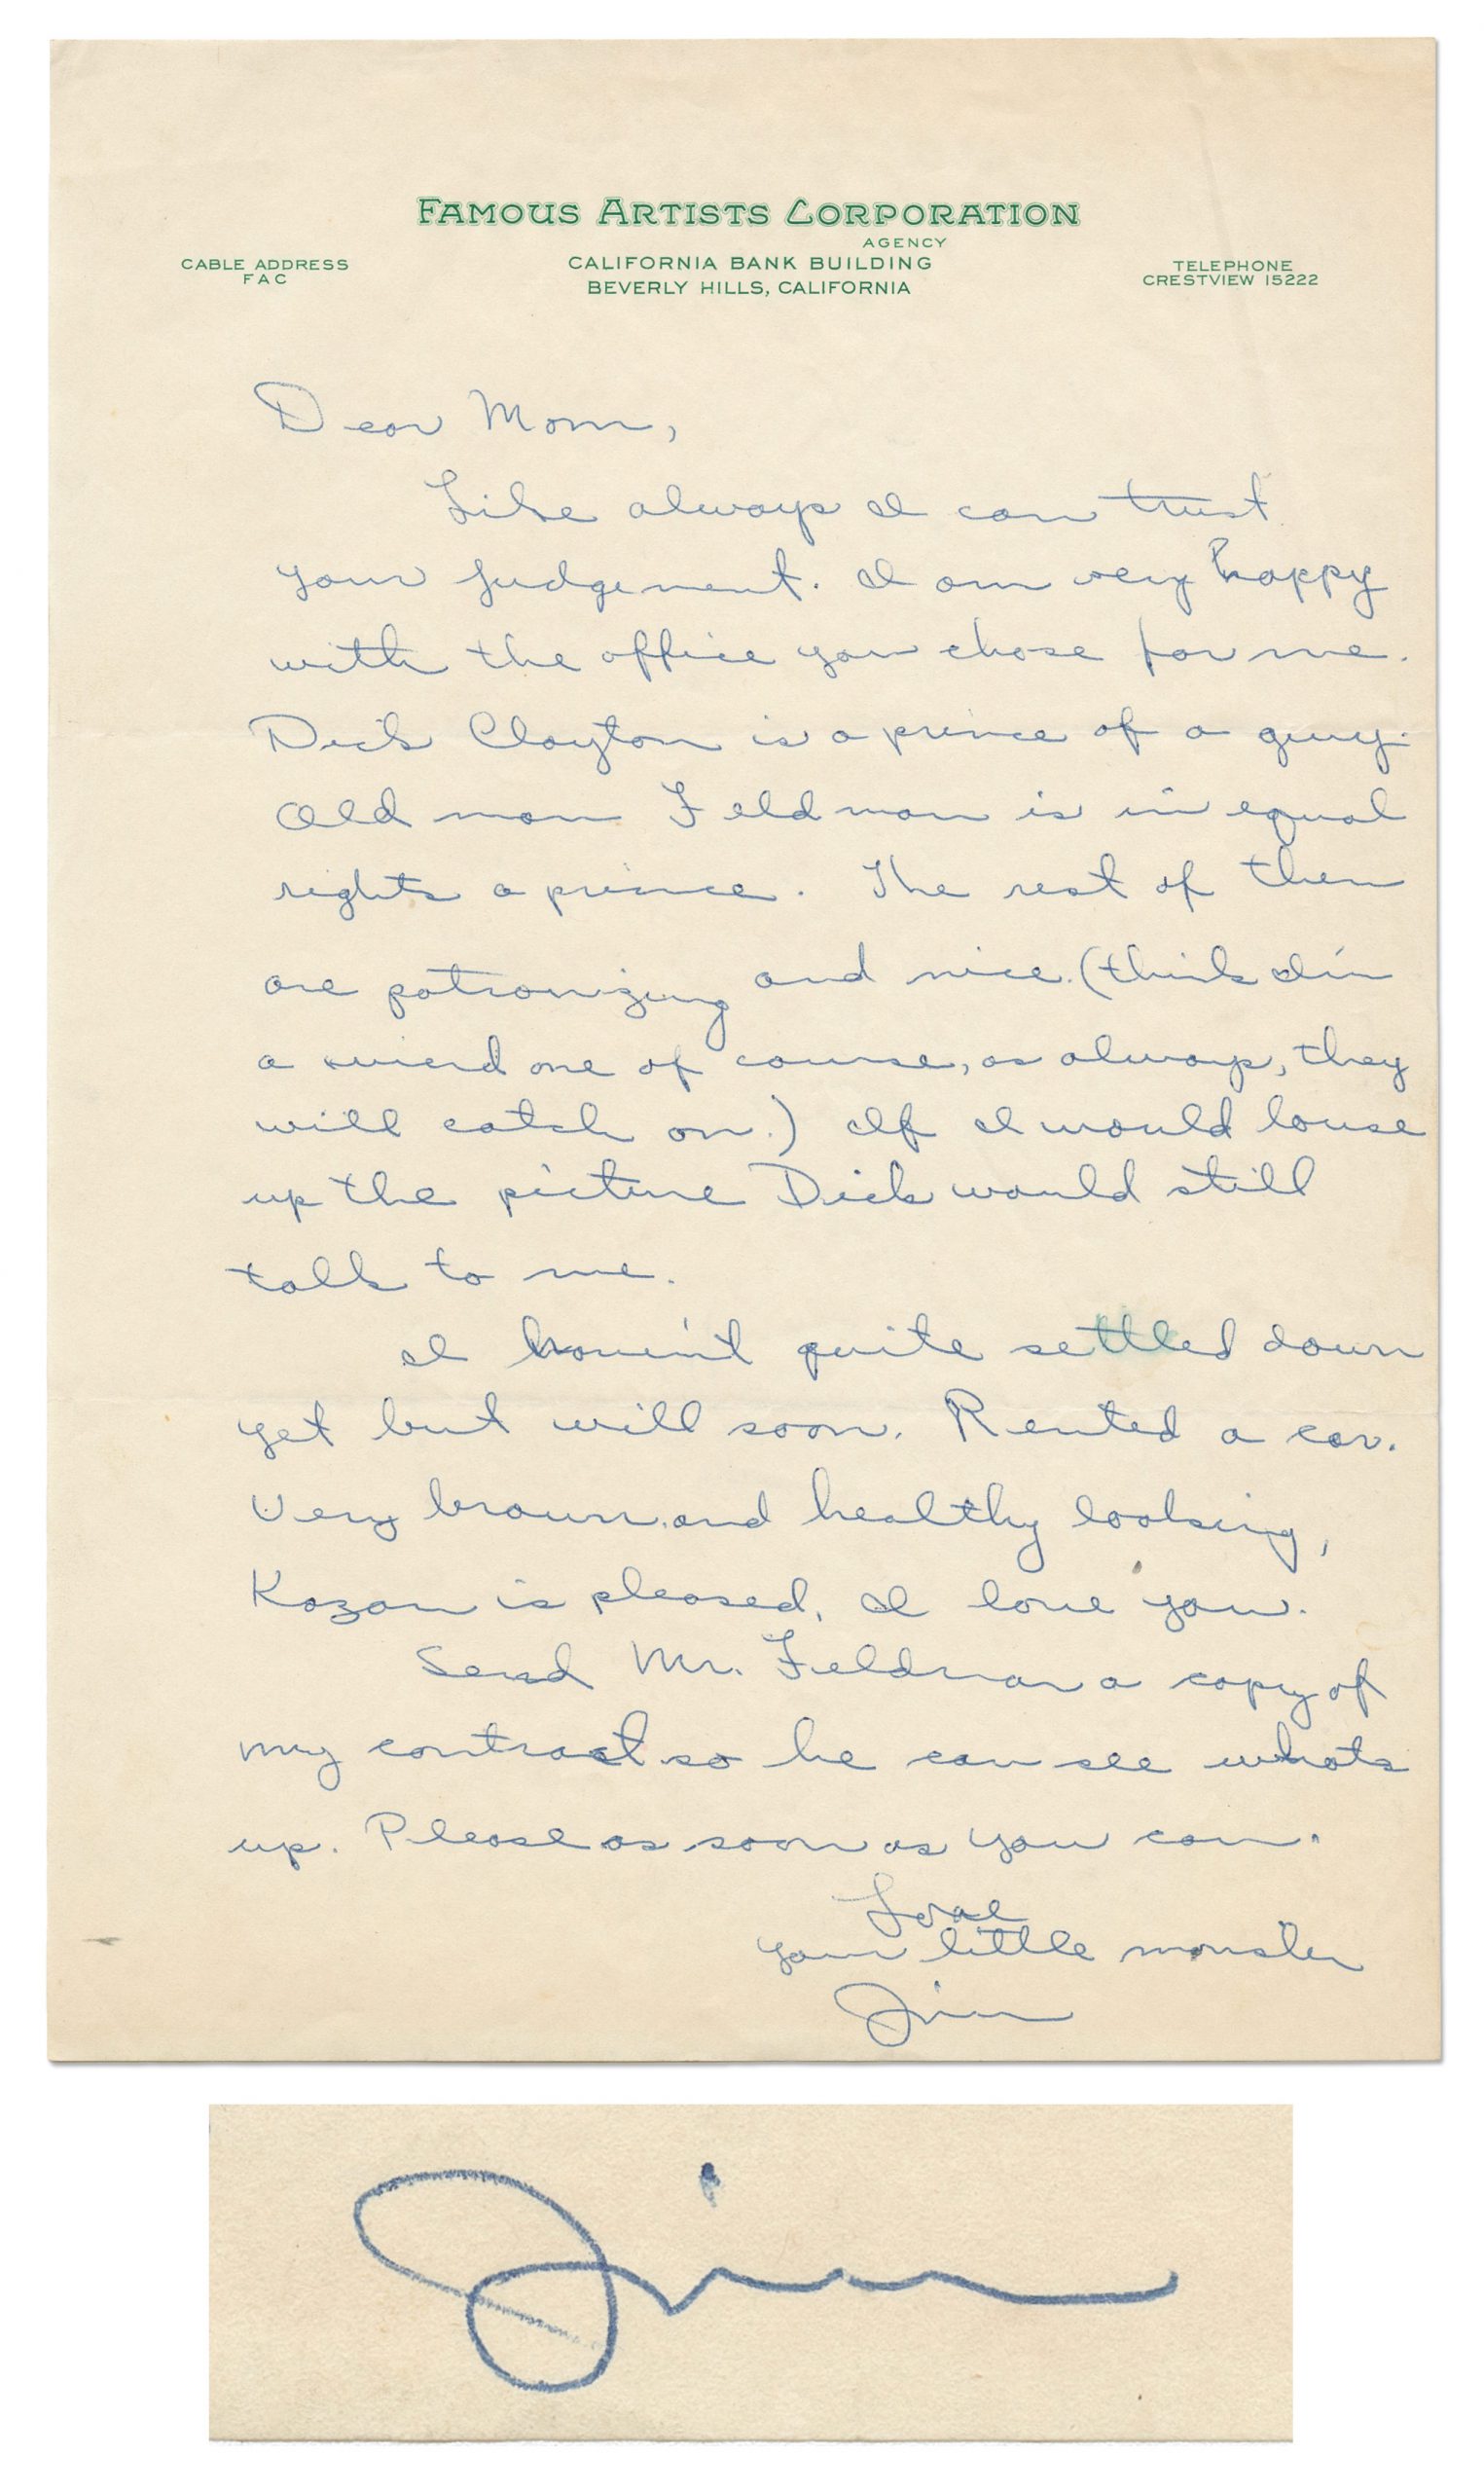 FAMOUS ARTISTS CORPORATION
AGENCY
CALIFORNIA BANK BUILDING
BEVERLY HILLS, CALIFORNIA
CABLE ADDRESS
FAC
TELEPHONE
CRESTVIEW 15222
Dear Mom,
Like always I can trust
your judgement. I am very happy
with the office you chose for me.
Dick Clayton is a prince of a guy.
Old man Feldman is in equal
rights a prince. The rest of them
are patronizing and nice. (think I'm
a wierd one of course, as always, they
will catch on.) If I would louse
up the picture Dick would still
talk to me.
I haven't quite settled down
yet but will soon. Rented a car.
Very brown and healthy looking,
Kazan is pleased. I love you.
Send Mr. Feldman a copy of
my contract so he can see whats
up. Please as soon as you can.
Love
your little monster
Jim
Jim